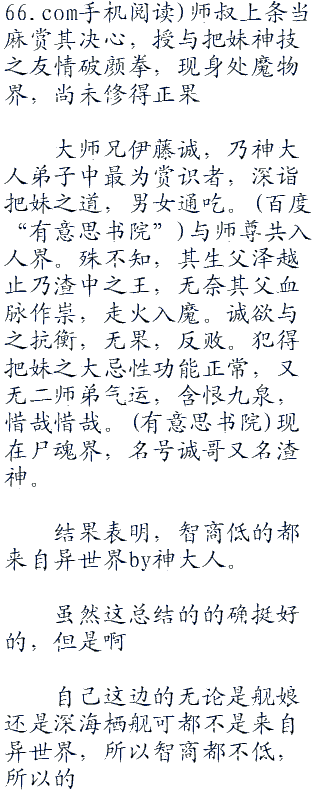 66.com手机阅读)师叔上条当
麻赏其决心，授与把妹神技
之友情破颜拳，现身处魔物
界，尚未修得正果
大师兄伊藤诚，乃神大
人弟子中最为赏识者，深诣
把妹之道，男女通吃。(百度
“有意思书院”)与师尊共入
人界。殊不知，其生父泽越
止乃渣中之王，无奈其父血
脉作祟，走火入魔。诚欲与
之抗衡，无果，反败。犯得
把妹之大忌性功能正常，又
无二师弟气运，含恨九泉，
惜哉惜哉。(有意思书院)现
在尸魂界，名号诚哥又名渣
神。
结果表明，智商低的都
来自异世界by神大人。
虽然这总结的的确挺好
的，但是啊
自己这边的无论是舰娘
还是深海栖舰可都不是来自
异世界，所以智商都不低，
所以的